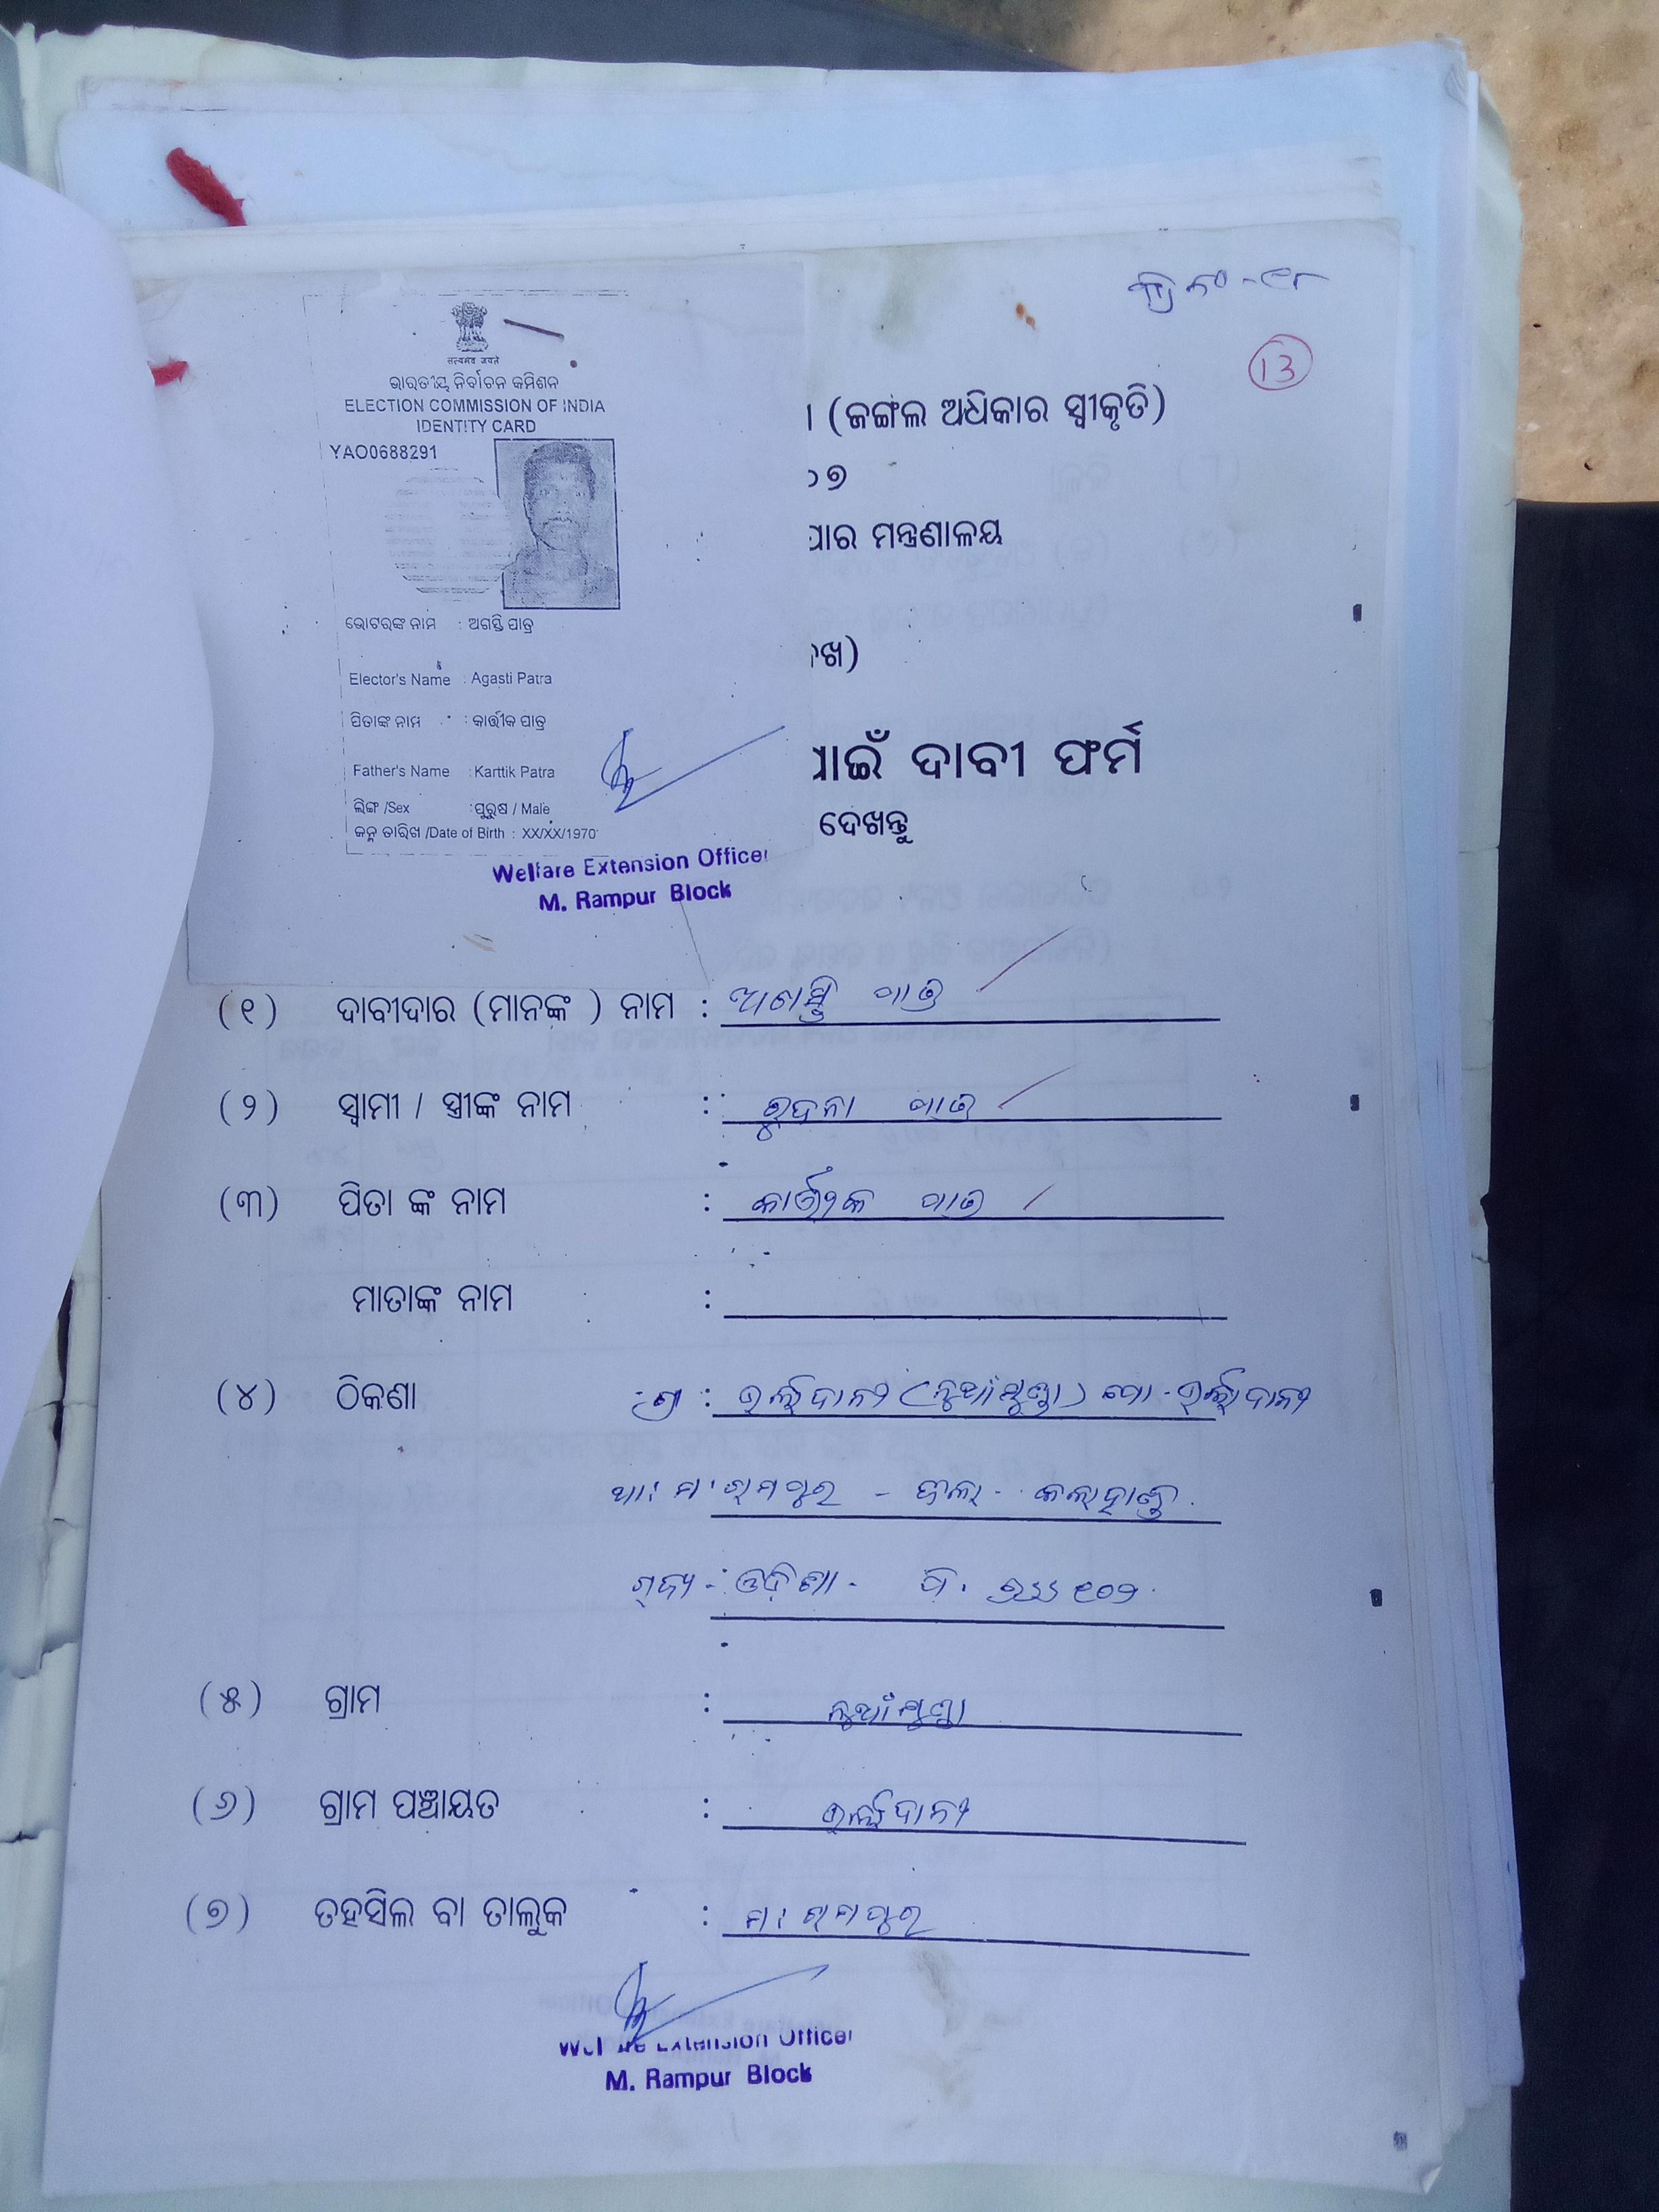 କ୍ର ନଂ - ୧୮
13
सत्यमेव जयते
ଭାରତୀୟ ନିର୍ବାଚନ କମିଶନ
ELECTION COMMISSION OF INDIA
IDENTITY CARD
YAO0688291
ଭୋଟରଙ୍କ ନାମ : ଅଗସ୍ତି ପାତ୍ର
Elector's Name : Agasti Patra
ପିତାଙ୍କ ନାମ : କାର୍ତ୍ତୀକ ପାତ୍ର
Father's Name : Karttik Patra
ଲିଙ୍ଗ /Sex : ପୁରୁଷ / Male
ଜନ୍ମ ତାରିଖ /Date of Birth : XX/XX/1970
Welfare Extension Officer
M. Rampur Block
(ଜଙ୍ଗଲ ଅଧିକାର ସ୍ୱୀକୃତି)
୦୭
ମନ୍ତ୍ରଣାଳୟ
ଦାବୀ ଫର୍ମ
ଦେଖନ୍ତୁ
(୧) ଦାବୀଦାର (ମାନଙ୍କ ) ନାମ : ଅଗସ୍ତି ପାତ୍ର
(୨) ସ୍ୱାମୀ / ସ୍ତ୍ରୀଙ୍କ ନାମ : ପାତ୍ର
(୩) ପିତା ଙ୍କ ନାମ : କାର୍ତ୍ତୀକ ପାତ୍ର
ମାତାଙ୍କ ନାମ :
(୪) ଠିକଣା : (ନୁଆଁମୁଣ୍ଡା) ପୋ -
ଥା: ମ. ରାମପୁର - ଜିଲା - କଳାହାଣ୍ଡି
ରାଜ୍ୟ - ଓଡ଼ିଶା - ପି. ୭୬୬୧୦୨
(୫) ଗ୍ରାମ : ନୁଆଁମୁଣ୍ଡା
(୬) ଗ୍ରାମ ପଞ୍ଚାୟତ :
(୭) ତହସିଲ ବା ତାଲୁକ : ମ. ରାମପୁର
Welfare Extension Officer
M. Rampur Block